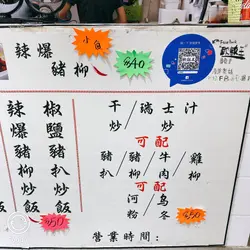 辣爆豬柳
小食
$40
辣爆豬柳炒飯
椒鹽豬扒炒飯
$50
干炒/瑞士汁炒
可配
豬扒/豬柳/牛肉/雞柳
可配
河粉/烏冬
$50
營業時間：